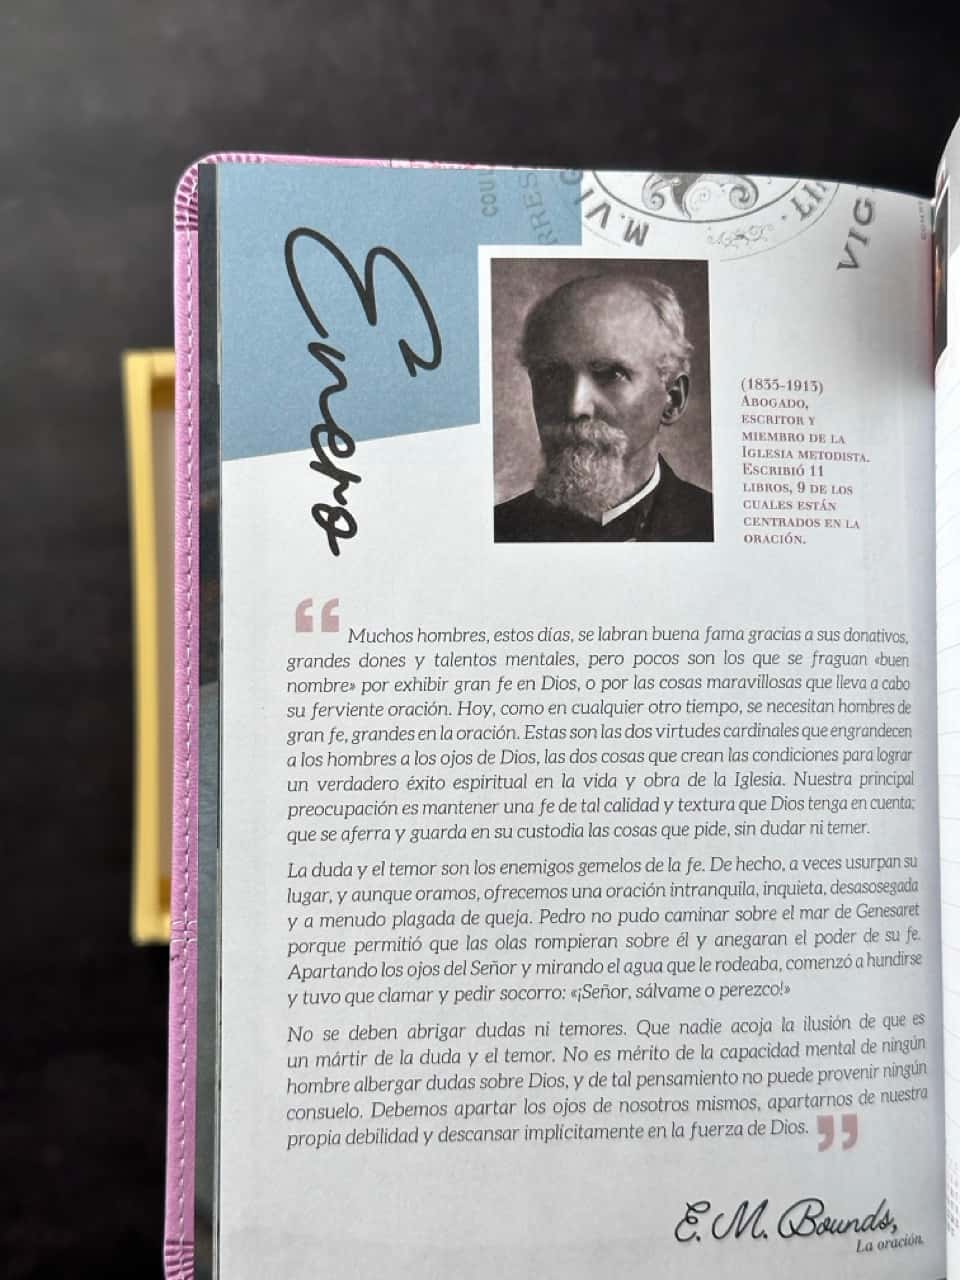 COU
RRES
M. VI
LI
VIG
Enero
(1835-1913)
ABOGADO,
ESCRITOR Y
MIEMBRO DE LA
IGLESIA METODISTA.
ESCRIBIÓ 11
LIBROS, 9 DE LOS
CUALES ESTÁN
CENTRADOS EN LA
ORACIÓN.
“ Muchos hombres, estos días, se labran buena fama gracias a sus donativos,
grandes dones y talentos mentales, pero pocos son los que se fraguan «buen
nombre» por exhibir gran fe en Dios, o por las cosas maravillosas que lleva a cabo
su ferviente oración. Hoy, como en cualquier otro tiempo, se necesitan hombres de
gran fe, grandes en la oración. Estas son las dos virtudes cardinales que engrandecen
a los hombres a los ojos de Dios, las dos cosas que crean las condiciones para lograr
un verdadero éxito espiritual en la vida y obra de la Iglesia. Nuestra principal
preocupación es mantener una fe de tal calidad y textura que Dios tenga en cuenta;
que se aferra y guarda en su custodia las cosas que pide, sin dudar ni temer.
La duda y el temor son los enemigos gemelos de la fe. De hecho, a veces usurpan su
lugar, y aunque oramos, ofrecemos una oración intranquila, inquieta, desasosegada
y a menudo plagada de queja. Pedro no pudo caminar sobre el mar de Genesaret
porque permitió que las olas rompieran sobre él y anegaran el poder de su fe.
Apartando los ojos del Señor y mirando el agua que le rodeaba, comenzó a hundirse
y tuvo que clamar y pedir socorro: «¡Señor, sálvame o perezco!»
No se deben abrigar dudas ni temores. Que nadie acoja la ilusión de que es
un mártir de la duda y el temor. No es mérito de la capacidad mental de ningún
hombre albergar dudas sobre Dios, y de tal pensamiento no puede provenir ningún
consuelo. Debemos apartar los ojos de nosotros mismos, apartarnos de nuestra
propia debilidad y descansar implícitamente en la fuerza de Dios. ”
E. M. Bounds,
La oración.